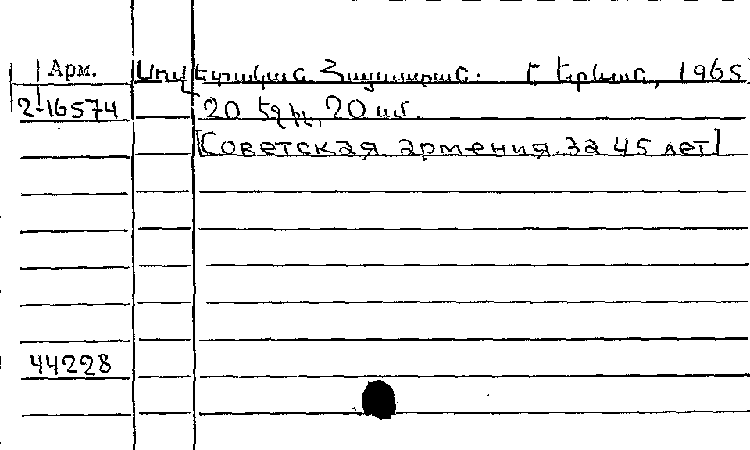 Арм. Սովետական Հայաստան. [Երևան, 1965
2-16574 20 եգիկ, 20 սմ.
[Советская армения за 45 лет]
44228